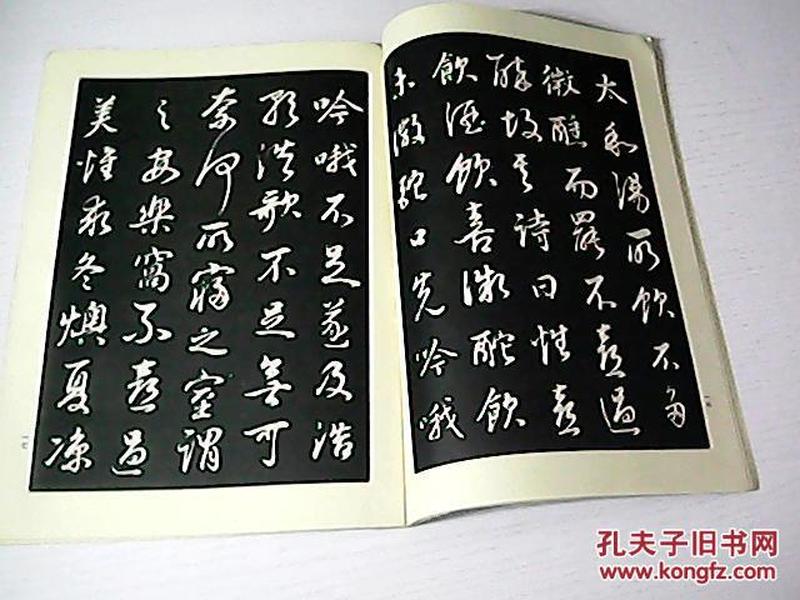 太和湯所飲不多
微醺而罷不喜過
醉故其詩曰性喜
飲酒飲喜微酡飲
未微酡口先吟哦
吟哦不足遂及浩
歌浩歌不足無可
奈何所寢之室謂
之安樂窩不喜過
美惟求冬燠夏凉
孔夫子旧书网
www.kongfz.com